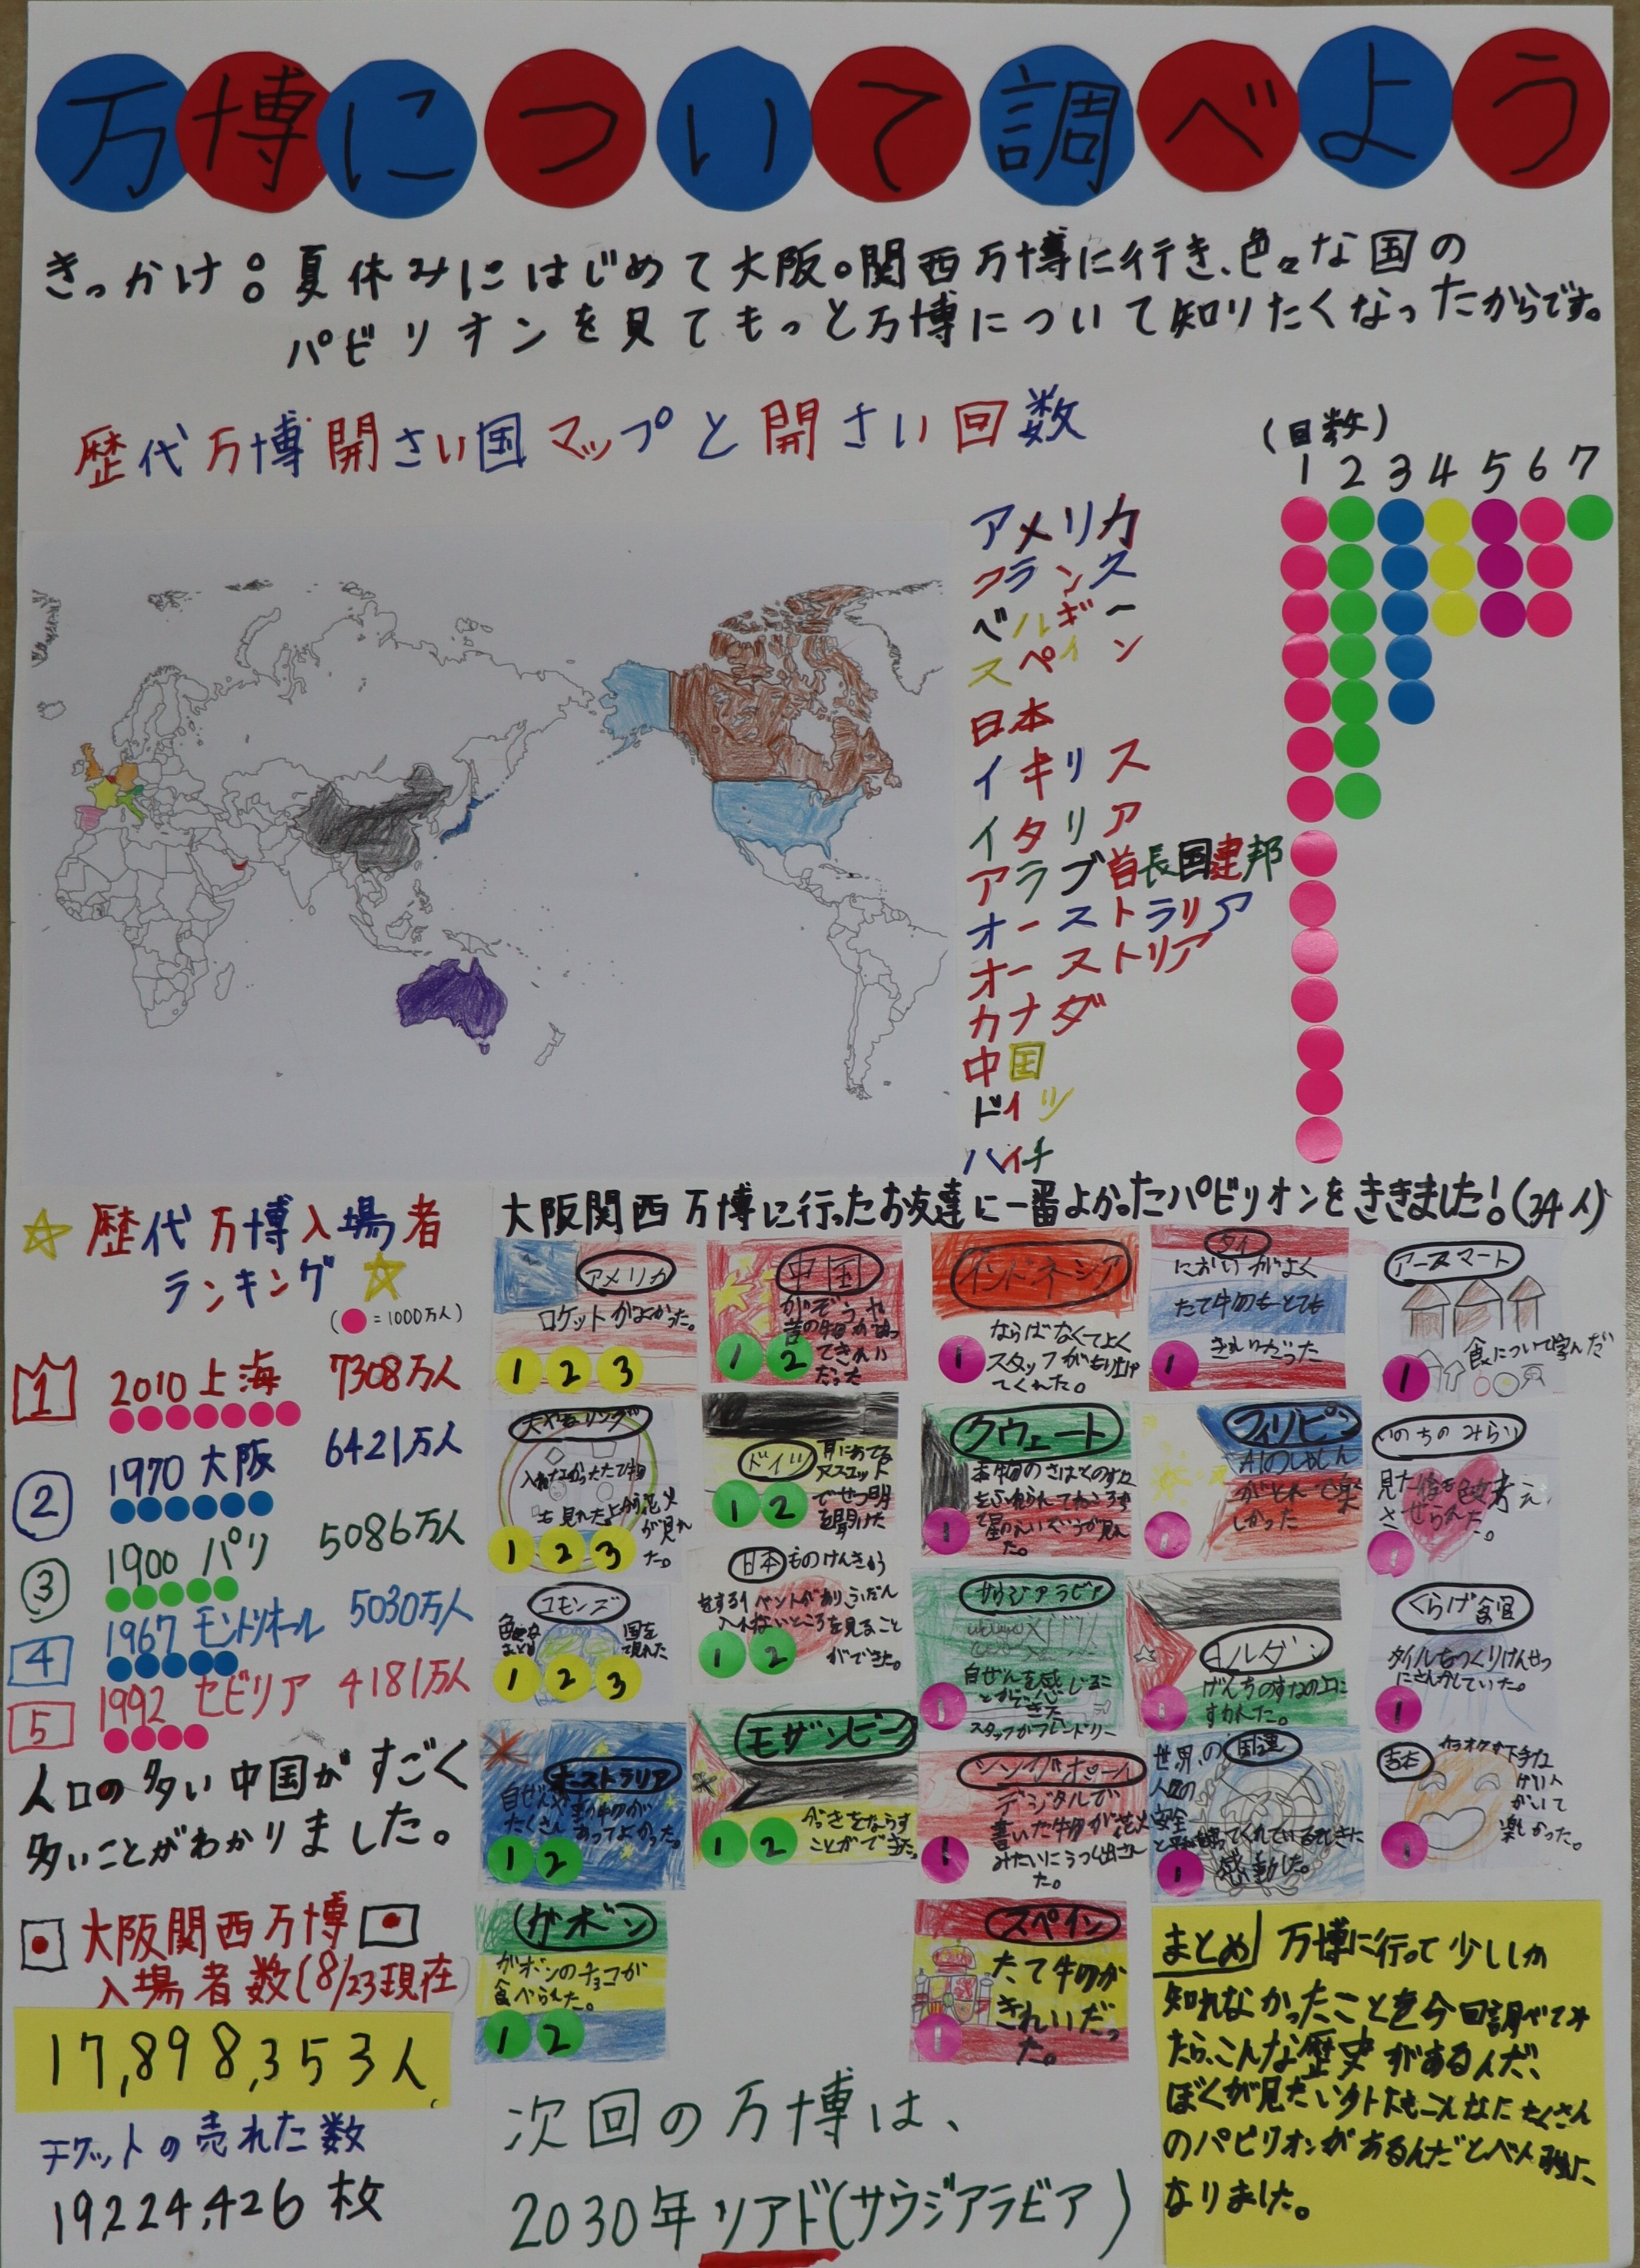 万博について調べよう
きっかけ:夏休みにはじめて大阪。関西万博に行き、色々な国の
パビリオンを見てもっと万博について知りたくなったからです。
歴代万博開さい国マップと開さい回数
(回数)
1 2 3 4 5 6 7
アメリカ
フランス
ベルギー
スペイン
日本
イギリス
イタリア
アラブ首長国連邦
オーストラリア
オーストリア
カナダ
中国
ドイツ
ハイチ
歴代万博入場者
ランキング
(=1000万人)
1 2010 上海 7308万人
2 1970 大阪 6421万人
3 1900 パリ 5086万人
4 1967 モントリオール 5030万人
5 1992 セビリア 4181万人
人口の多い中国がすごく
多いことがわかりました。
大阪関西万博
入場者数(8/23現在)
17,898,353人
チケットの売れた数
19,224,426枚
大阪関西万博に行ったお友達に一番よかったパビリオンをききました!(34人)
アメリカ
ロケットがよかった。
1 2 3
大やねリング
1 2 3
コモンズ
1 2 3
オーストラリア
たくさんあってよかった。
1 2
ガボン
ガボンのチョコが
食べられた。
1 2
中国
1 2
ドイツ
でせつ明
を聞けた
1 2
日本
ができた。
1 2
モザンビーク
がっきをならす
ことができた。
1 2
インドネシア
ならばなくてよく
スタッフがもり上げ
てくれた。
1
クウェート
1
サウジアラビア
自ぜんを感じるこ
とができた
スタッフがフレンドリー
1
シンガポール
デジタルで
書いた物が花火
みたいにうつし出され
た。
1
スペイン
たて物が
きれいだっ
た。
1
タイ
においがよく
たて物もとても
きれいだった
1
フィリピン
AIのしゃしん
がとれて楽
しかった
1
ヨルダン
げんちのすなの上に
すわれた。
1
国連
世界の
人の
安全
感動した。
1
アースマート
食について学んだ
1
いのちのみらい
1
くらげ館
タイルをつくりけんせつ
にさんかしていた。
1
吉本
カラオケが下手な
げい人
がいて
楽しかった。
1
次回の万博は、
2030年リアド(サウジアラビア)
まとめ 万博に行って少ししか
知れなかったことを今回調べてみ
たら、こんな歴史があるんだ、
ぼくが見たい外にもこんなにたくさん
のパビリオンがあるんだとべん強に
なりました。